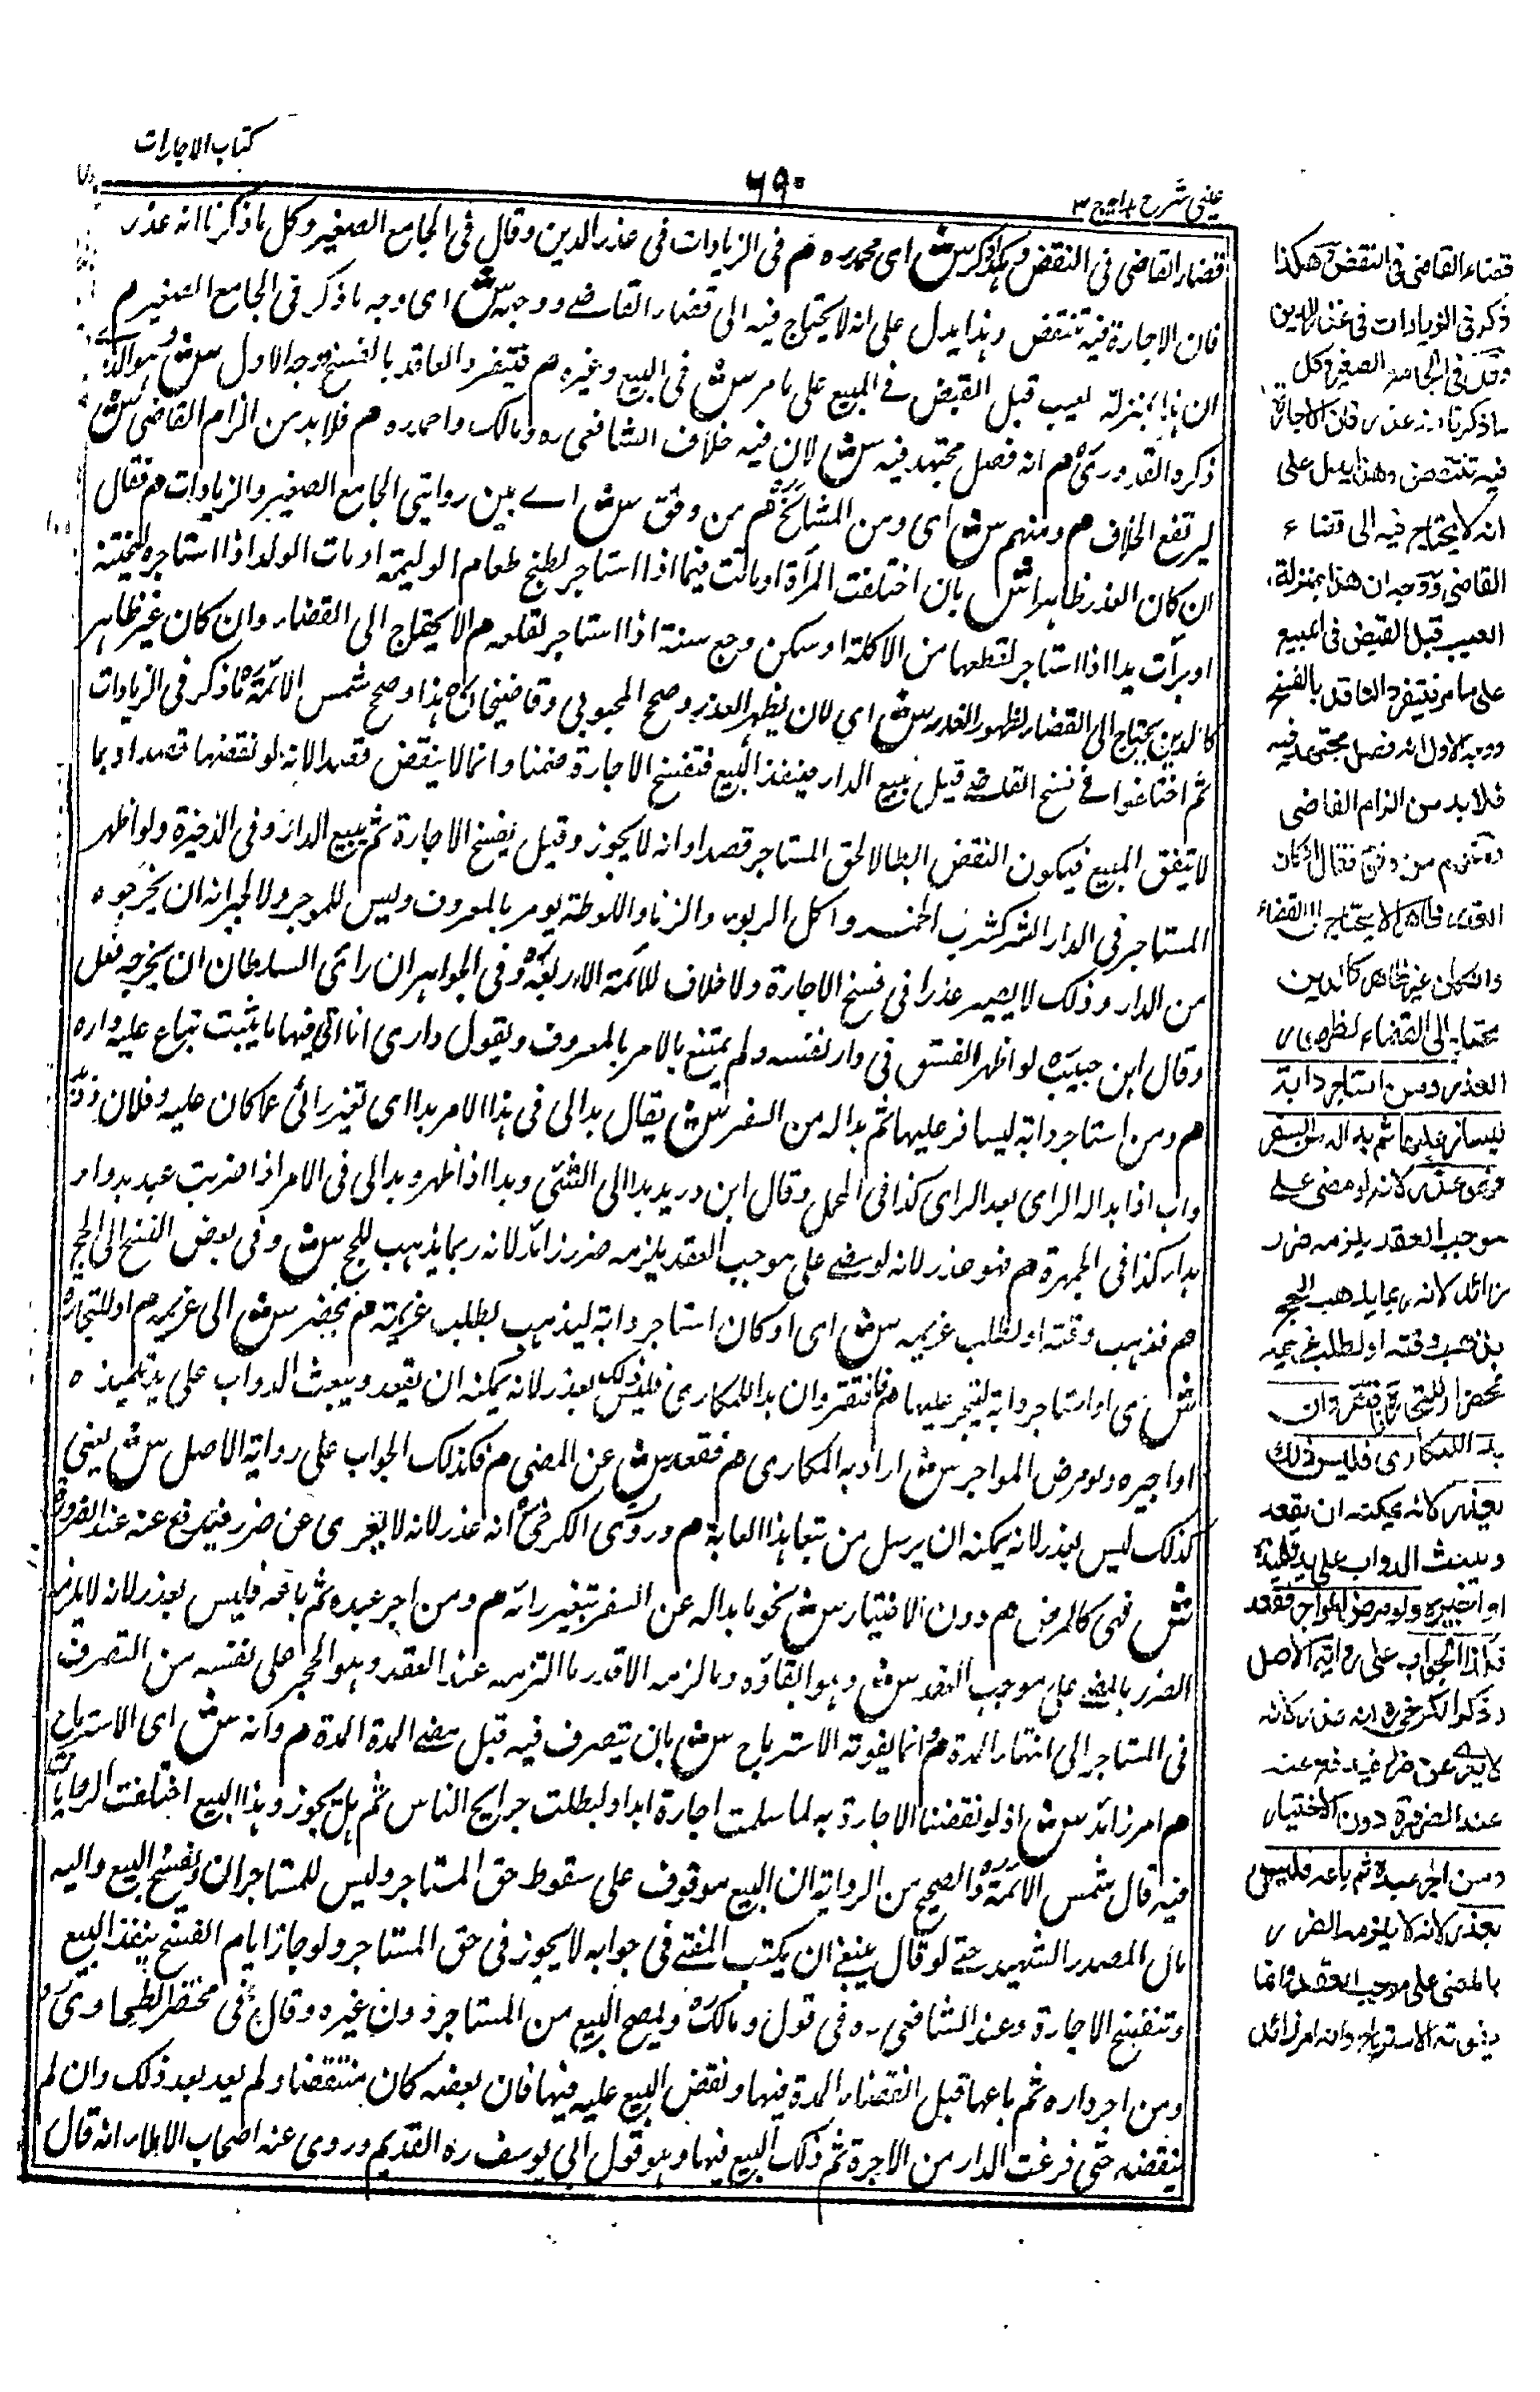 كتاب الاجارات
٦٩٠
عینی شرح هدایه ج ٣
قضاء القاضی فی النقض وهكذا ذكر ش ای محمد ره م فی الزیادات فی عذر الدین وقال فی الجامع الصغیر وكل ما ذكرنا انه عذر
فان الاجارة فیه تنتقض وهذا یدل علی انه لا یحتاج فیه الی قضاء القاضے ووجهه ش ای وجه ما ذكر فی الجامع الصغیر م
ان هذا بمنزلة لعیب قبل القبض فے المبیع علی ما مر ش فی البیع وغیره م فیتفرد العاقد بالفسخ ووجه الاول ش وهو الذی
ذكره القدوری م انه فصل مجتهد فیه ش لان فیه خلاف الشافعی ره ومالك واحمد ره م فلا بد من الزام القاضی ش
لیرتفع الخلاف م ومنهم ش ای ومن المشائخ م من وفق ش اے بین روایتی الجامع الصغیر والزیادات م فقال
ان كان العذر ظاهرا ش بان اختلفت المرأة او ماتت فیما اذا استاجر لطبخ طعام الولیمة او مات الولد اذا استاجره لیختنه
او برأت یدا اذا استاجر لقطعها من الاكلة او سكن وجع سنة اذا استاجر لقلعه م لا یحتاج الی القضاء وان كان غیر ظاهر
كالدین یحتاج الی القضاء لظهور العذر ش ای لان یظهر العذر وصحح المحبوبی وقاضیخان هذا وصحح شمس الائمة ما ذكر فی الزیادات
ثم اختلفوا فے فسخ القاضے قیل یبیع الدار فینفذ البیع فتفسخ الاجارة ضمنا وانما لا ینقض قصدا لانه لو نقضها قصدا ربما
لا یتفق البیع فیكون النقض ابطالا لحق المستاجر قصدا وانه لا یجوز وقیل یفسخ الاجارة ثم یبیع الدار وفی الذخیرة ولو اظهر
المستاجر فی الدار الشر كشرب الخمر واكل الربوا والزنا واللواطة یومر بالمعروف ولیس للموجر ولا لجیرانه ان یخرجوه
من الدار وذلك لا یصیر عذرا فی فسخ الاجارة ولا خلاف للائمة الاربعة وفی الجواهر ان رائی السلطان ان یخرجه فعل
وقال ابن حبیب لو اظهر الفسق فی دار نفسه ولم یمتنع بالامر بالمعروف ویقول داری انا اتی فیها ما یثبت تباع علیه داره
م ومن استاجر دابة لیسافر علیها ثم بدا له من السفر ش یقال بدا لی فی هذا الامر بدا ای تغیر رائی عما كان علیه وفلان ذو
بداوات اذا بدا له الرای بعد الرای كذا فی المجمل وقال ابن درید بدا لی الشئی وبدا اذا ظهر وبدا لی فی الامر اذا ضربت عبد بدوا و
بداء كذا فی الجمهرة م فهو عذر لانه لو مضے علی موجب العقد یلزمه ضرر زائد لانه ربما یذهب للحج ش وفی بعض النسخ الی الحج
م فذهب وقته او لطلب غریمه ش ای او كان استاجر دابة لیذهب لطلب غریمة م فحضر ش الی غریمه م او للتجارة
ش ای او استاجر دابة لیتجر علیها م فافتقر وان بدا للمكاری فلیس ذلك بعذر لانه یمكنه ان یقعد ویبعث الدواب علی ید تلمیذه
او اجیره ولو مرض المواجر ش اراد به المكاری م فقعد ش عن المضی م فكذلك الجواب علی روایة الاصل ش یعنی
كذلك لیس بعذر لانه یمكنه ان یرسل من یتعاهد الدابة م وروی الكرخی انه عذر لانه لا یعری عن ضرر فیدفع عنه عند الضرورة
ش فهی كالمرض م دون الاختیار ش نحو ما بدا له عن السفر بتغیر رائه م ومن اجر عبده ثم باعه فلیس بعذر لانه لا یلزمه
الضرر بالمضے علی موجب العقد ش وهو ابقاؤه وما لزمه الا قدر ما التزمه عند العقد وهو الحجر علی نفسه من التصرف
فی المستاجر الی انتهاء المدة م وانما یفوته الاسترباح ش بان یتصرف فیه قبل مضے المدة المدة م وانه ش ای الاسترباح
م امر زائد ش اذ لو نقضنا الاجارة به لما سلمت اجارة ابدا ولبطلت حوایج الناس ثم هل یجوز هذا البیع اختلفت الروایات
فیه قال شمس الائمة ره والصحیح من الروایة ان البیع موقوف علی سقوط حق المستاجر ولیس للمستاجر ان یفسخ البیع والیه
مال الصدر الشهید حتے لو قال ینبغے ان یكتب المفتے فی جوابه لا یجوز فی حق المستاجر ولو جاز ایام الفسخ ینفذ البیع
وتنفسخ الاجارة وعند الشافعی ره فی قول ومالك ویصح البیع من المستاجر دون غیره وقال فی مختصر الطحاوی
ومن اجر داره ثم باعها قبل انقضاء المدة فیها ونقض البیع علیه فیها فان بعضه كان منتقضا ولم یعد بعد ذلك وان لم
ینقضه حتی فرغت الدار من الاجرة ثم ذلك البیع فیها وهو قول ابی یوسف ره القدیم وروی عنه اصحاب الاملاء انه قال
قضاء القاضی فی النقض وهكذا
ذكر فی الزیادات فی عذر الدین
وقال فی الجامع الصغیر وكل
ما ذكرنا انه عذر فان الاجارة
فیه تنتقض وهذا یدل علی
انه لا یحتاج فیه الی قضاء
القاضی ووجهه ان هذا بمنزلة
العیب قبل القبض فی المبیع
علی ما مر فیتفرد العاقد بالفسخ
ووجه الاول انه فصل مجتهد فیه
فلا بد من الزام القاضی
ومنهم من وفق فقال ان كان
العذر ظاهرا لا یحتاج الی القضاء
وان كان غیر ظاهر كالدین
یحتاج الی القضاء لظهور
العذر ومن استاجر دابة
لیسافر علیها ثم بدا له من السفر
فهو عذر لانه لو مضی علی
موجب العقد یلزمه ضرر
زائد لانه ربما یذهب للحج
فذهب وقته او لطلب غریمه
فحضر او للتجارة فافتقر وان
بدا للمكاری فلیس ذلك
بعذر لانه یمكنه ان یقعد
ویبعث الدواب علی ید تلمیذه
او اجیره ولو مرض المواجر فقعد
فكذا الجواب علی روایة الاصل
وذكر الكرخی ره انه عذر لانه
لا یعری عن ضرر فیدفع عنه
عند الضرورة دون الاختیار
ومن اجر عبده ثم باعه فلیس
بعذر لانه لا یلزمه الضرر
بالمضی علی موجب العقد وانما
یفوته الاسترباح وانه امر زائد